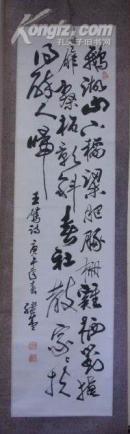 Kongfz.com
孔夫子旧书网
鵝湖山下稻粱肥豚栅雞栖對掩
扉桑柘影斜春社散家々扶
得醉人歸
王駕詩 庚午年春